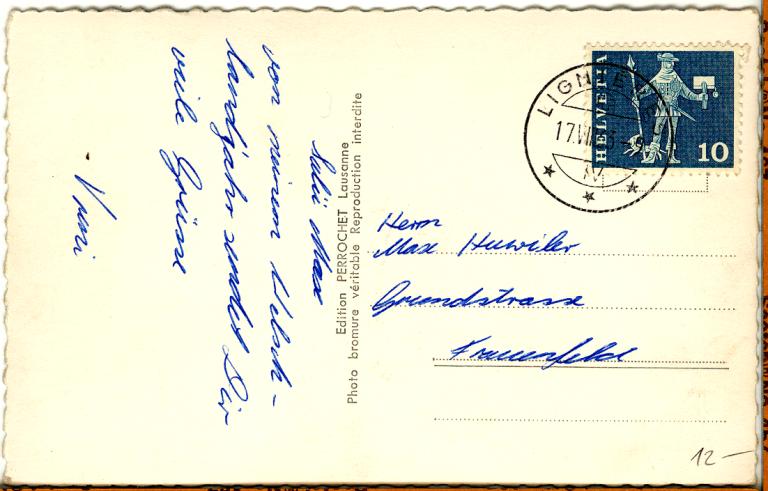 Salü Max
von meinem Welsch-
landjahr sendet Dir
viele Grüsse
Vreni
Edition PERROCHET Lausanne
Photo bromure véritable Reproduction interdite
HELVETIA
10
17.VII
Herrn
Max Huwiler
Grundstrasse
Frauenfeld
12-